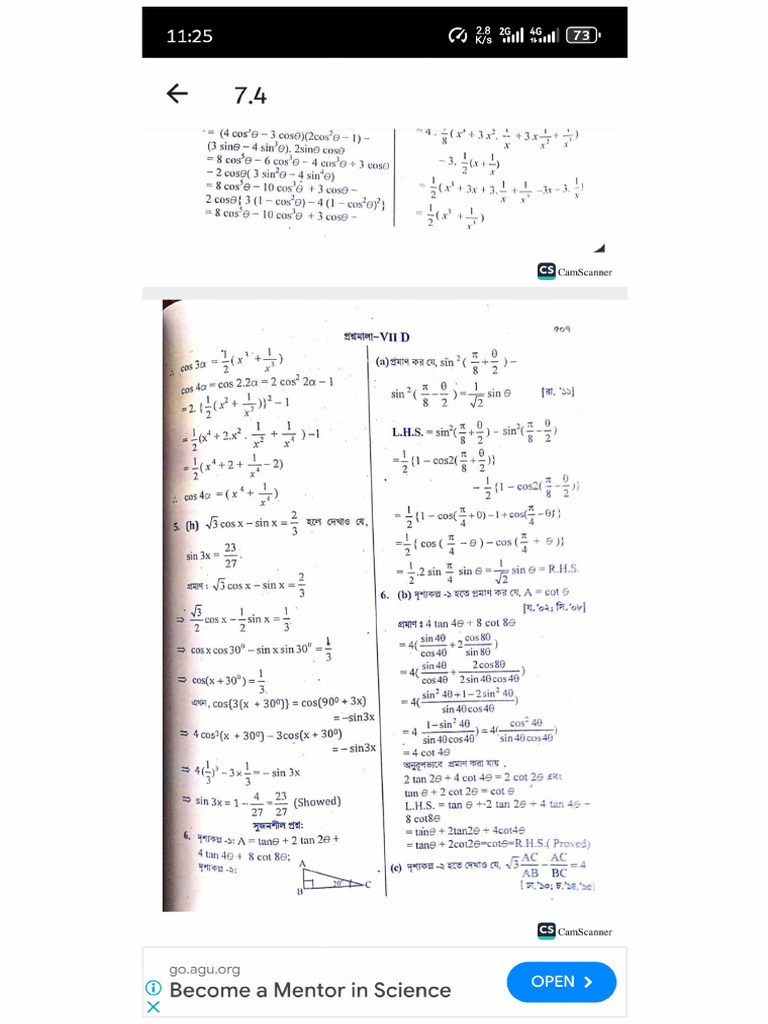 11:25
2.8 K/s 2G 4G 73
7.4
= (4 cos³θ – 3 cosθ)(2cos²θ – 1) –
(3 sinθ – 4 sin³θ). 2sinθ cosθ
= 8 cos⁵θ – 6 cos³θ – 4 cos³θ + 3 cosθ
– 2 cosθ( 3 sin²θ – 4 sin⁴θ)
= 8 cos⁵θ – 10 cos³θ + 3 cosθ –
2 cosθ{ 3 (1 – cos²θ) – 4 (1 – cos²θ)²}
= 8 cos⁵θ – 10 cos³θ + 3 cosθ –
= 4 . 1/8 (x³ + 3 x². 1/x + 3 x 1/x² + 1/x³)
– 3. 1/2 (x + 1/x)
= 1/2 (x³ + 3x + 3. 1/x + 1/x³ –3x – 3. 1/x)
= 1/2 (x³ + 1/x³)
CS CamScanner
প্রশ্নমালা–VII D
৭০৭
∴ cos 3α = 1/2 (x³ + 1/x³)
cos 4α = cos 2.2α = 2 cos² 2α – 1
= 2. {1/2 (x² + 1/x²)}² – 1
= 1/2 (x⁴ + 2.x². 1/x² + 1/x⁴) –1
= 1/2 (x⁴ + 2 + 1/x⁴ – 2)
∴ cos 4α = (x⁴ + 1/x⁴)
5. (h) √3 cos x – sin x = 2/3 হলে দেখাও যে,
sin 3x = 23/27.
প্রমাণ : √3 cos x – sin x = 2/3
⇒ √3/2 cos x – 1/2 sin x = 1/3
⇒ cos x cos 30° – sin x sin 30° = 1/3
⇒ cos(x + 30°) = 1/3.
এখন, cos{3(x + 30⁰)} = cos(90⁰ + 3x)
= –sin3x
⇒ 4 cos³(x + 30⁰) – 3cos(x + 30⁰)
= – sin3x
⇒ 4(1/3)³ – 3 × 1/3 = – sin 3x
⇒ sin 3x = 1 – 4/27 = 23/27 (Showed)
সৃজনশীল প্রশ্ন:
6. দৃশ্যকল্প -১: A = tanθ + 2 tan 2θ +
4 tan 4θ + 8 cot 8θ;
দৃশ্যকল্প -২:
A
B
2θ
C
(a) প্রমাণ কর যে, sin² (π/8 + θ/2) –
sin² (π/8 – θ/2) = 1/√2 sin θ [রা. '১১]
L.H.S. = sin²(π/8 + θ/2) – sin²(π/8 – θ/2)
= 1/2 {1 – cos2(π/8 + θ/2)}
– 1/2 {1 – cos2(π/8 – θ/2)}
= 1/2 {1 – cos(π/4 + θ) – 1 + cos(π/4 – θ)}
= 1/2 { cos (π/4 – θ) – cos (π/4 + θ)}
= 1/2 .2 sin π/4 sin θ = 1/√2 sin θ = R.H.S.
6. (b) দৃশ্যকল্প -১ হতে প্রমাণ কর যে, A = cot θ
[য.'০২; সি.'০৮]
প্রমাণ ঃ 4 tan 4θ + 8 cot 8θ
= 4( sin 4θ/cos 4θ + 2 cos 8θ/sin 8θ )
= 4( sin 4θ/cos 4θ + 2cos 8θ/2 sin 4θ cos 4θ )
= 4( sin² 4θ + 1 – 2 sin² 4θ/sin 4θ cos 4θ )
= 4 1 – sin² 4θ/sin 4θ cos 4θ = 4( cos² 4θ/sin 4θ cos 4θ )
= 4 cot 4θ
অনুরূপভাবে প্রমাণ করা যায় .
2 tan 2θ + 4 cot 4θ = 2 cot 2θ এবং
tan θ + 2 cot 2θ = cot θ
L.H.S. = tan θ + 2 tan 2θ + 4 tan 4θ –
8 cot8θ
= tanθ + 2tan2θ + 4cot4θ
= tanθ + 2cot2θ=cotθ=R.H.S.( Proved)
(c) দৃশ্যকল্প -২ হতে দেখাও যে, √3 AC/AB – AC/BC = 4
[ ঢা.'১০; চ.'১৪,'১৫]
CS CamScanner
go.agu.org
Become a Mentor in Science
OPEN